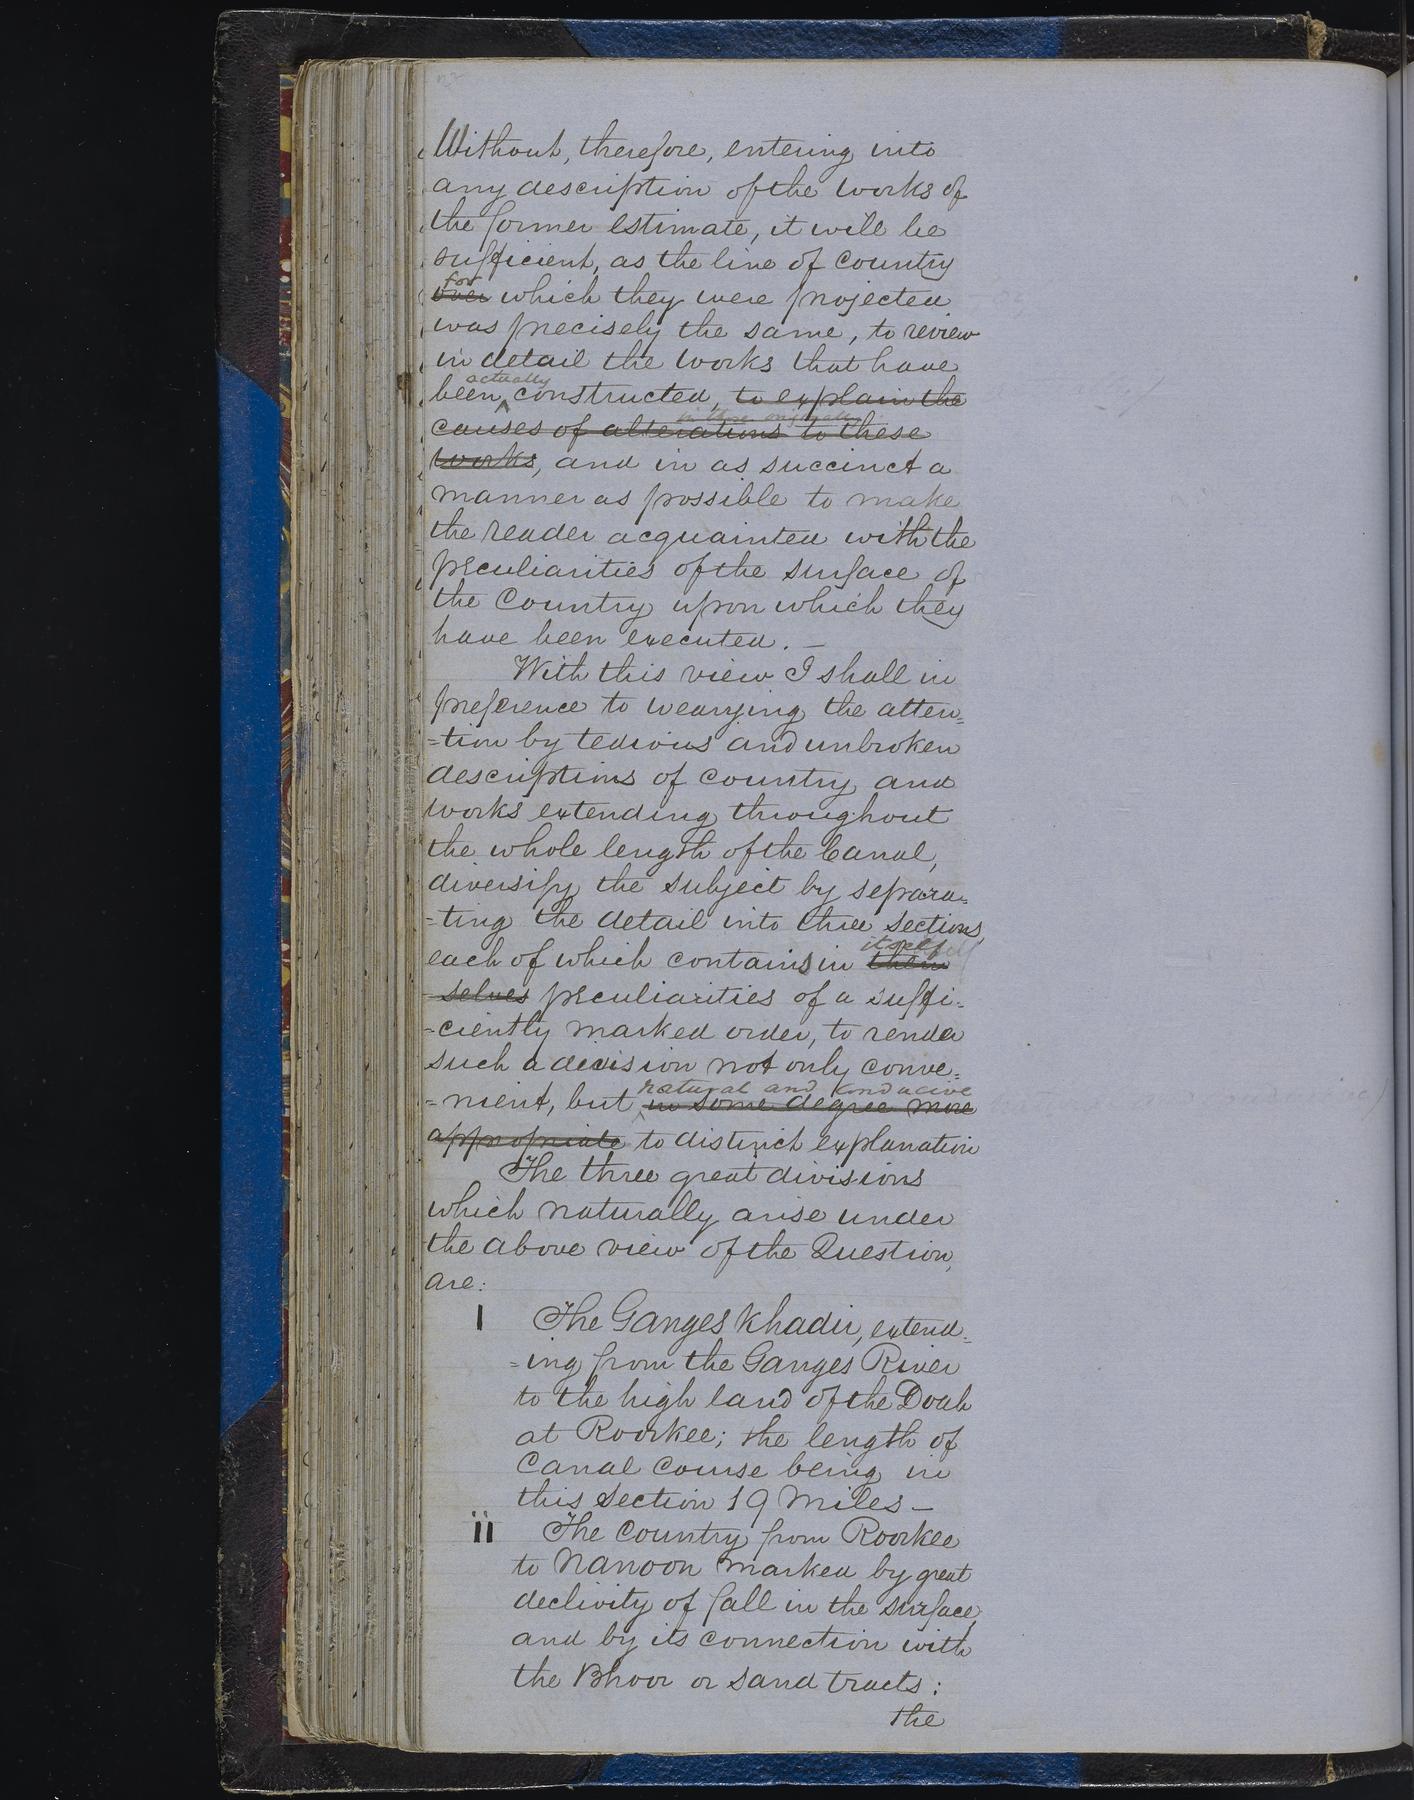 Without, therefore, entering into
any description of the works of
the former estimate, it will be
sufficient, as the line of country
for
over which they were projected
was precisely the same, to review
in detail the works that have
actually
been constructed, to explain the
causes of alterations to these
works, and in as succinct a
manner as possible to make
the reader acquainted with the
peculiarities of the surface of
the Country upon which they
have been executed. —
With this view I shall in
preference to wearying the atten=
=tion by tedious and unbroken
descriptions of country and
works extending throughout
the whole length of the Canal,
diversify the subject by separa=
=ting the detail into three sections,
itself
each of which contains in them
selves peculiarities of a suffi=
=ciently marked order, to render
such a division not only conve=
natural and conducive
=nient, but in some degree more
appropriate to distinct explanation
The three great divisions
which naturally arise under
the above view of the Question,
are:
I The Ganges Khadir, extend=
=ing from the Ganges River
to the high land of the Doab
at Roorkee; the length of
Canal Course being in
this Section 19 Miles —
ii The Country from Roorkee
to Nanoon marked by great
declivity of fall in the surface,
and by its connection with
the Bhoor or sand tracts:
the